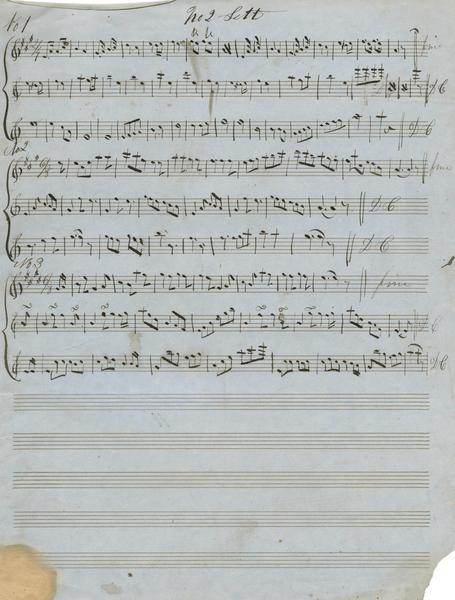 No 1
No 2 Sett
fine
D C
D C
No 2
fine
D C
D C
No 3
fine
D C
D C